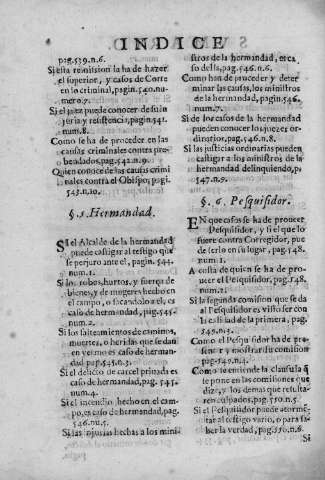 INDICE
pag. 539. n. 6.
Si esta remission la ha de hazer
el superior, y casos de Corte
en lo criminal, pagin. 540. nu-
mero. 7.
Si el juez puede conozer de su in-
juria y resistencia, pagin. 541.
num. 8.
Como se ha de proceder en las
causas criminales contra pre-
bendados, pag. 542. n. 9.
Quien conoce de las causas crimi-
nales contra el Obispo, pagi.
543. n. 10.
§. 5. Hermandad.
SI el Alcalde de la hermandad
puede castigar al testigo que
se perjuro ante el, pagin. 544.
num. 1.
Si los robos, hurtos, y fuerça de
bienes, y de mugeres hecho en
el campo, o sacandolo a el, es
caso de hermandad, pag. 545.
num. 2.
Si los salteamientos de caminos,
muertes, o heridas que se dan
en yermo es caso de herman-
dad pag. 545. n. 3.
Si el delicto de carcel privada es
caso de hermandad, pag. 545.
num. 4.
Si el incendio hecho en el cam-
po, es caso de hermandad, pag.
546. num. 5.
Si las injurias hechas a los mini-
stros de la hermandad, es ca
so della, pag. 546. n. 6.
Como han de proceder y deter
minar las causas, los ministros
de la hermandad, pagin. 546.
num. 7.
Si de los casos de la hermandad
pueden conocer los juezes or-
dinarios, pag. 546. n. 8.
Si las justicias ordinarias pueden
castigar a los ministros de la
hermandad delinquiendo, p.
547. n. 9.
§. 6. Pesquisidor.
EN que casos se ha de proveer
Pesquisidor, y si el que lo
fuere contra Corregidor, pue
de serlo en su lugar, pag. 548.
num. 1.
A costa de quien se ha de pro-
veer el Pesquisidor, pag. 548.
num. 2.
Si la segunda comision que se da
al Pesquisidor es visto ser con
la calidad de la primera, pag.
549. n. 3.
Como el Pesquisidor ha de pre-
sentar y mostrar su comision
pag. 549. n. 4.
Como se entiende la clausula q̃
se pone en las comisiones que
dize, y los demas que resulta-
ren culpados, pag. 550. n. 5.
Si el Pesquisidor puede atormē-
tar al testigo vario, o para sa-
ber la verdad, pag. 550. n. 6.
Si